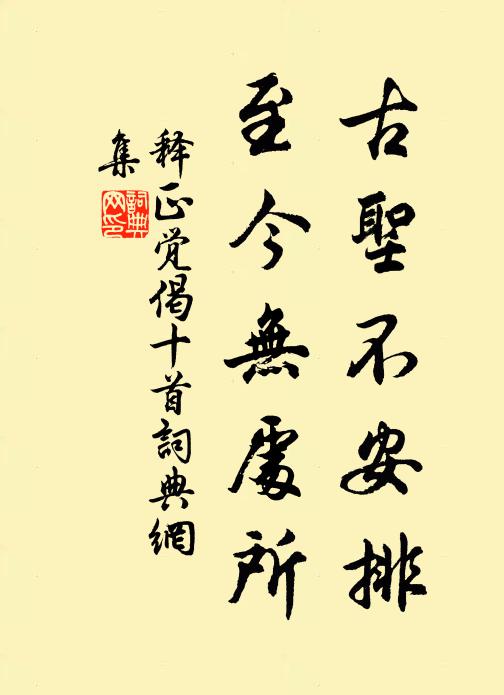 古聖不安排
至今無處所
释正觉偈十首詞典網
集
詞典
网印